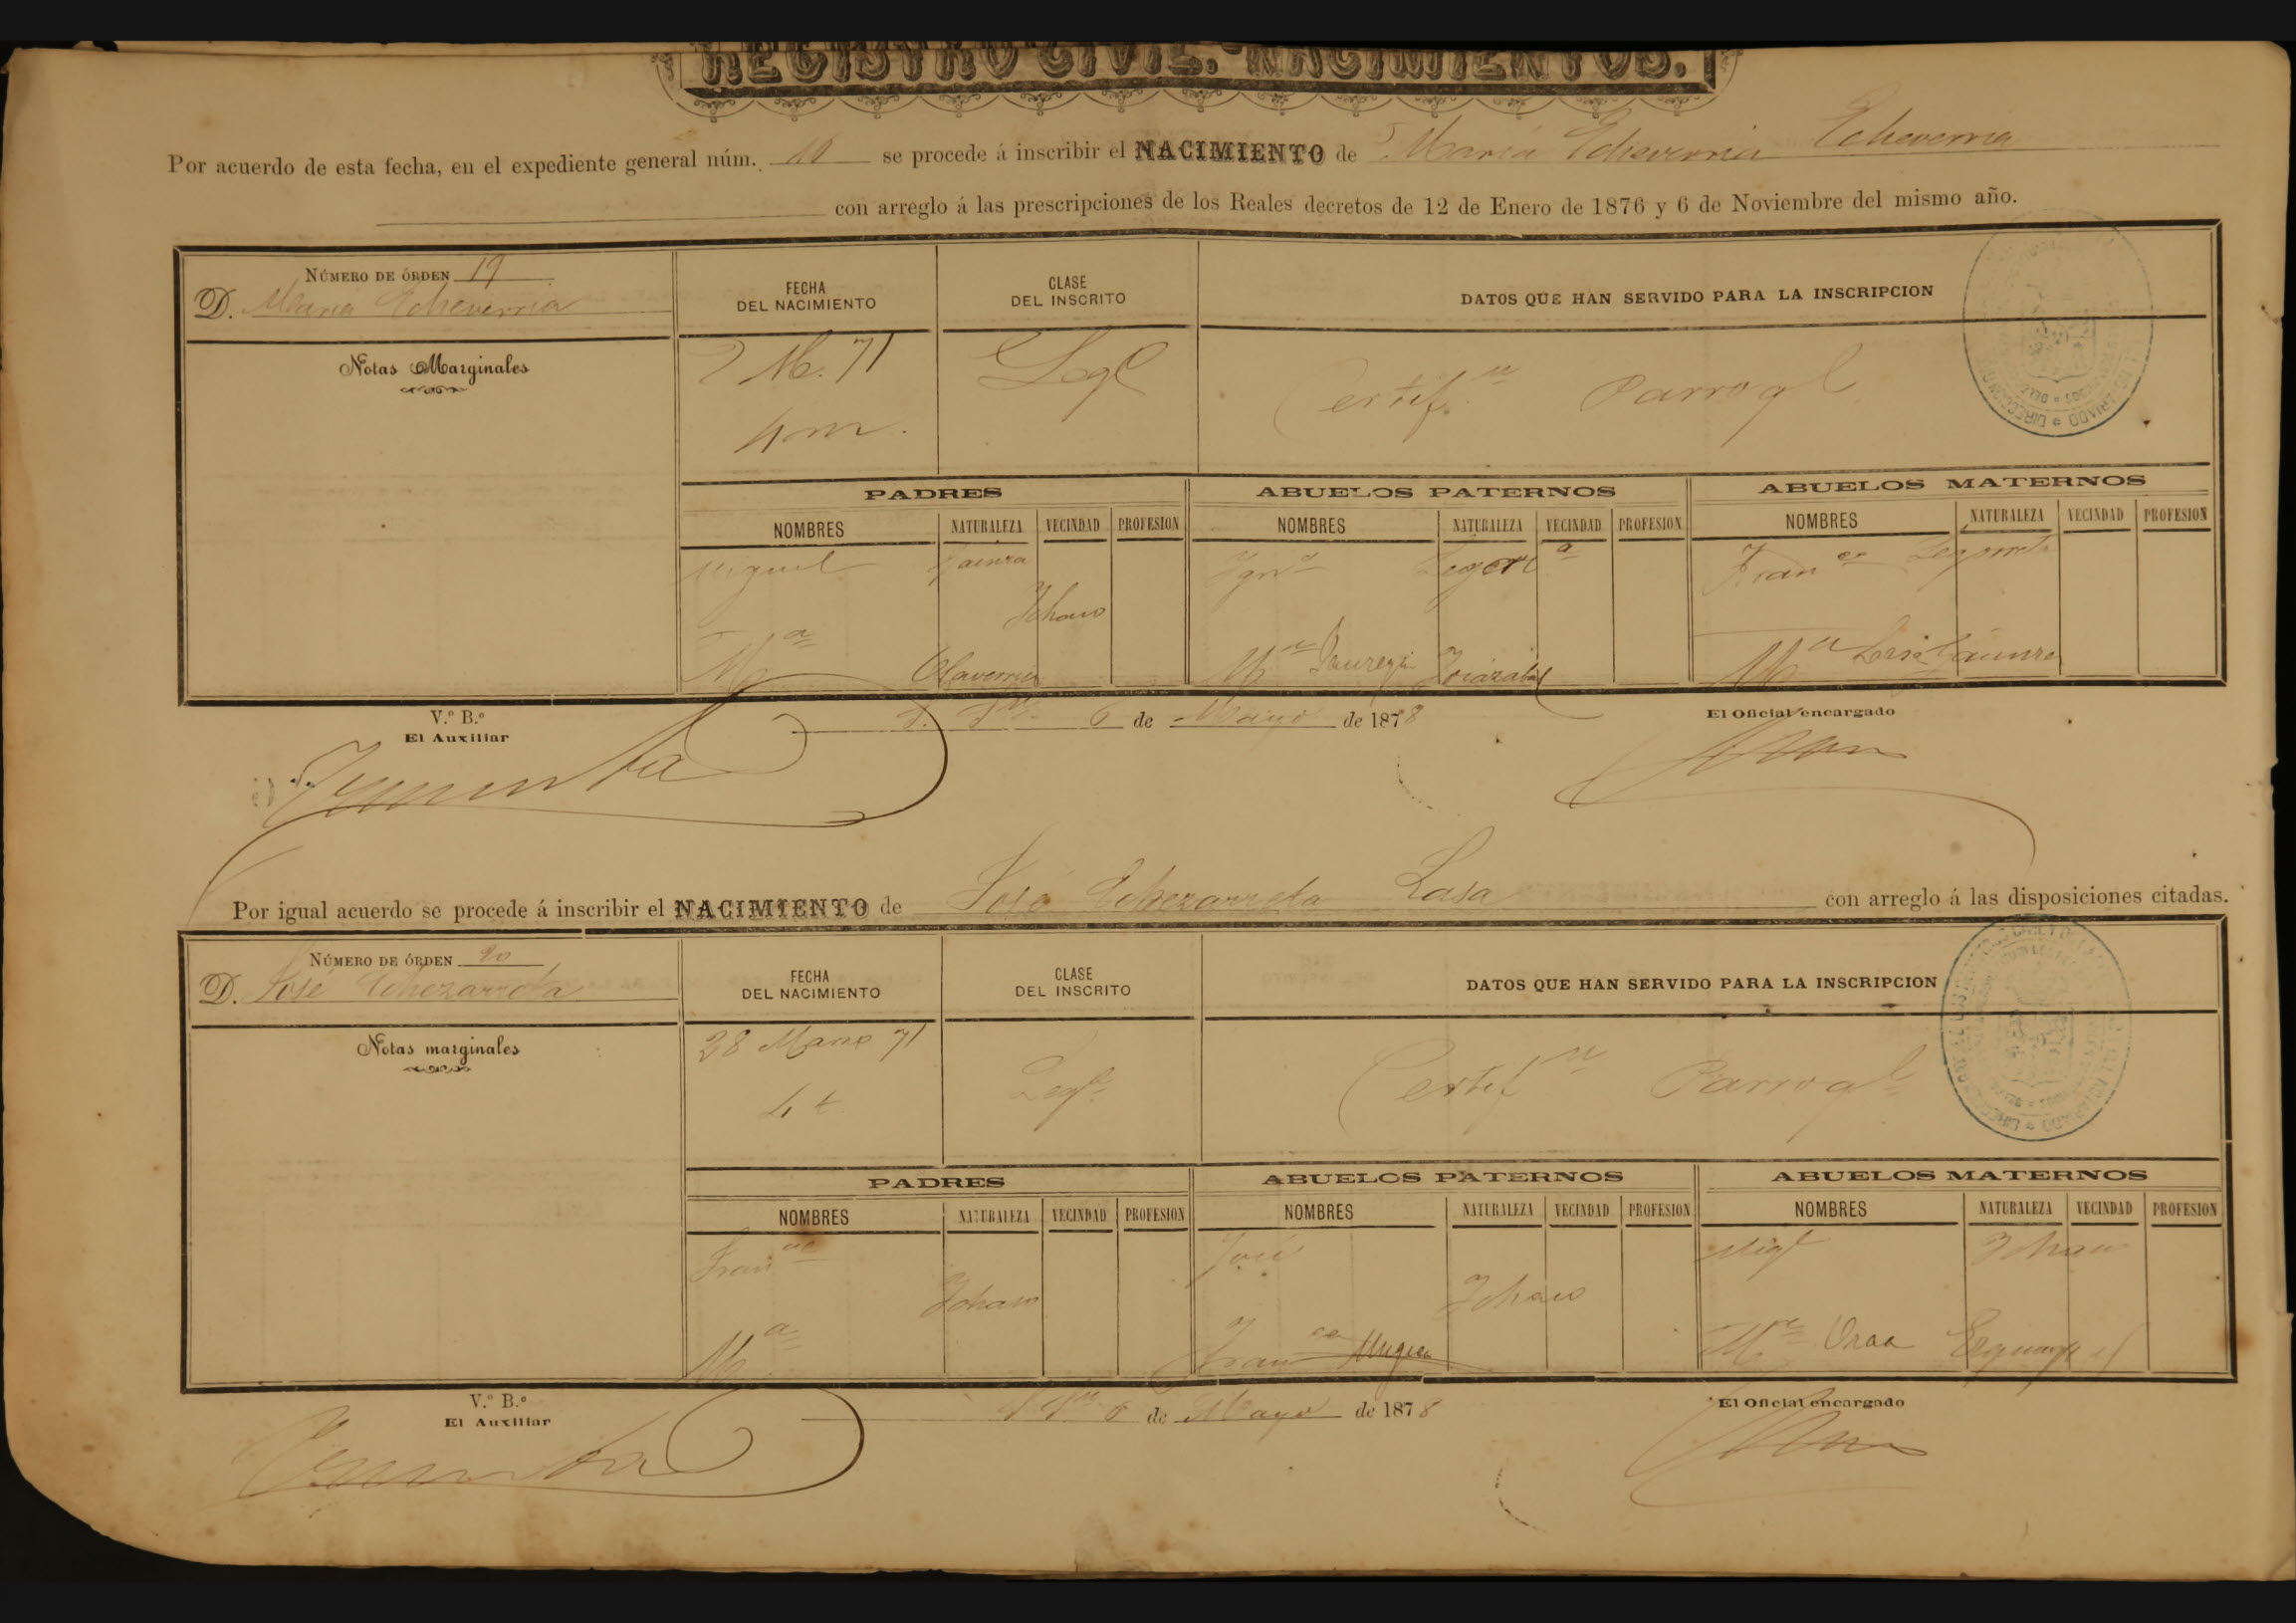 REGISTRO CIVIL. NACIMIENTOS.
Por acuerdo de esta fecha, en el expediente general núm. 10 se procede á inscribir el NACIMIENTO de María Echeverria Echeverria
con arreglo á las prescripciones de los Reales decretos de 12 de Enero de 1876 y 6 de Noviembre del mismo año.
NÚMERO DE ÓRDEN 19
D. Maria Echeverria
Notas Marginales
FECHA DEL NACIMIENTO
CLASE DEL INSCRITO
DATOS QUE HAN SERVIDO PARA LA INSCRIPCION
M. 71
4 m.
Legl
Certif.n Parroql
PADRES
ABUELOS PATERNOS
ABUELOS MATERNOS
NOMBRES NATURALEZA VECINDAD PROFESION
NOMBRES NATURALEZA VECINDAD PROFESION
NOMBRES NATURALEZA VECINDAD PROFESION
Miguel Gainza
Ign.o
Fran.co
Ichaso
M.a Olaverria
M.a Jauregui
M.a
V.º B.º
El Auxiliar
6 de Mayo de 1878
El Oficial encargado
Por igual acuerdo se procede á inscribir el NACIMIENTO de José Echezarreta Lasa con arreglo á las disposiciones citadas.
NÚMERO DE ÓRDEN 20
D. José Echezarreta
Notas marginales
FECHA DEL NACIMIENTO
CLASE DEL INSCRITO
DATOS QUE HAN SERVIDO PARA LA INSCRIPCION
28 Marzo 71
4 t.
Legl
Certif.n Parroql
PADRES
ABUELOS PATERNOS
ABUELOS MATERNOS
NOMBRES NATURALEZA VECINDAD PROFESION
NOMBRES NATURALEZA VECINDAD PROFESION
NOMBRES NATURALEZA VECINDAD PROFESION
Fran.co
José
Migl Ichaso
Ichaso
Ichaso
M.a
Fran.ca Mugica
M.a Oraa
V.º B.º
El Auxiliar
6 de Mayo de 1878
El Oficial encargado